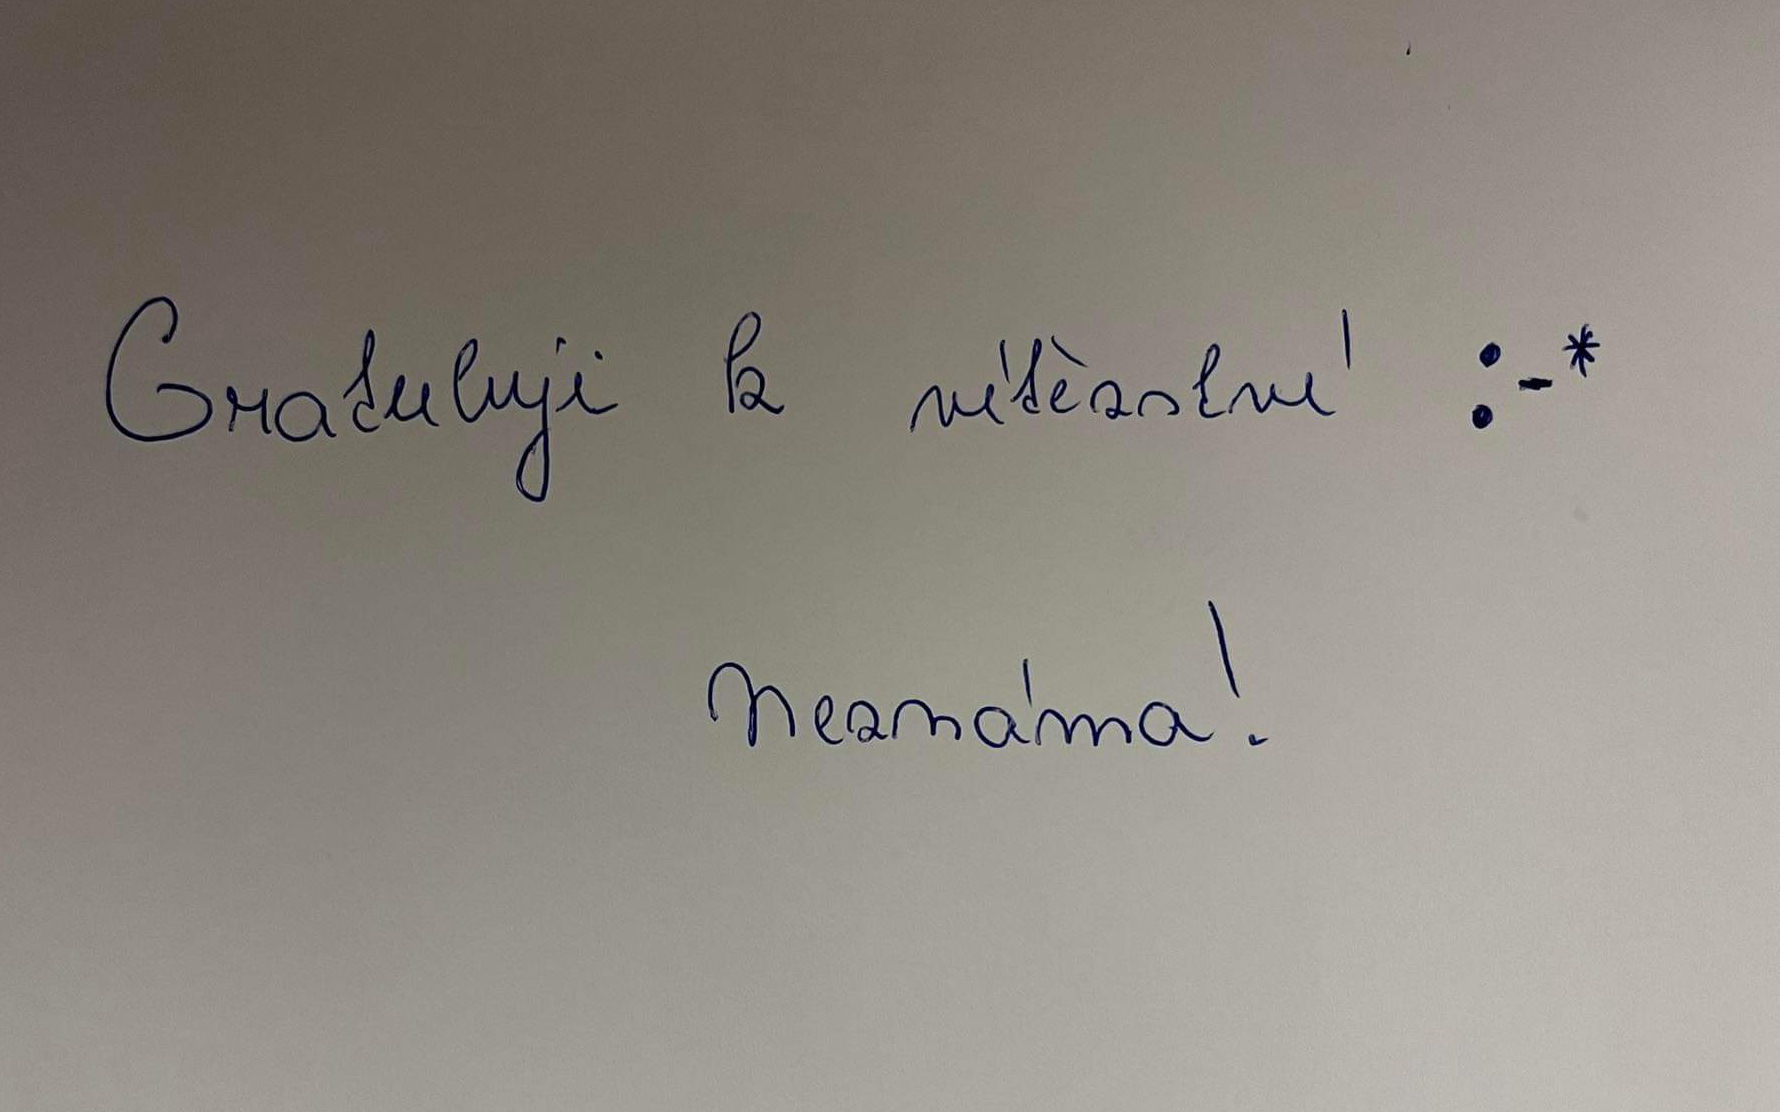 Gratuluji k vítězství :-*
Neznáma!